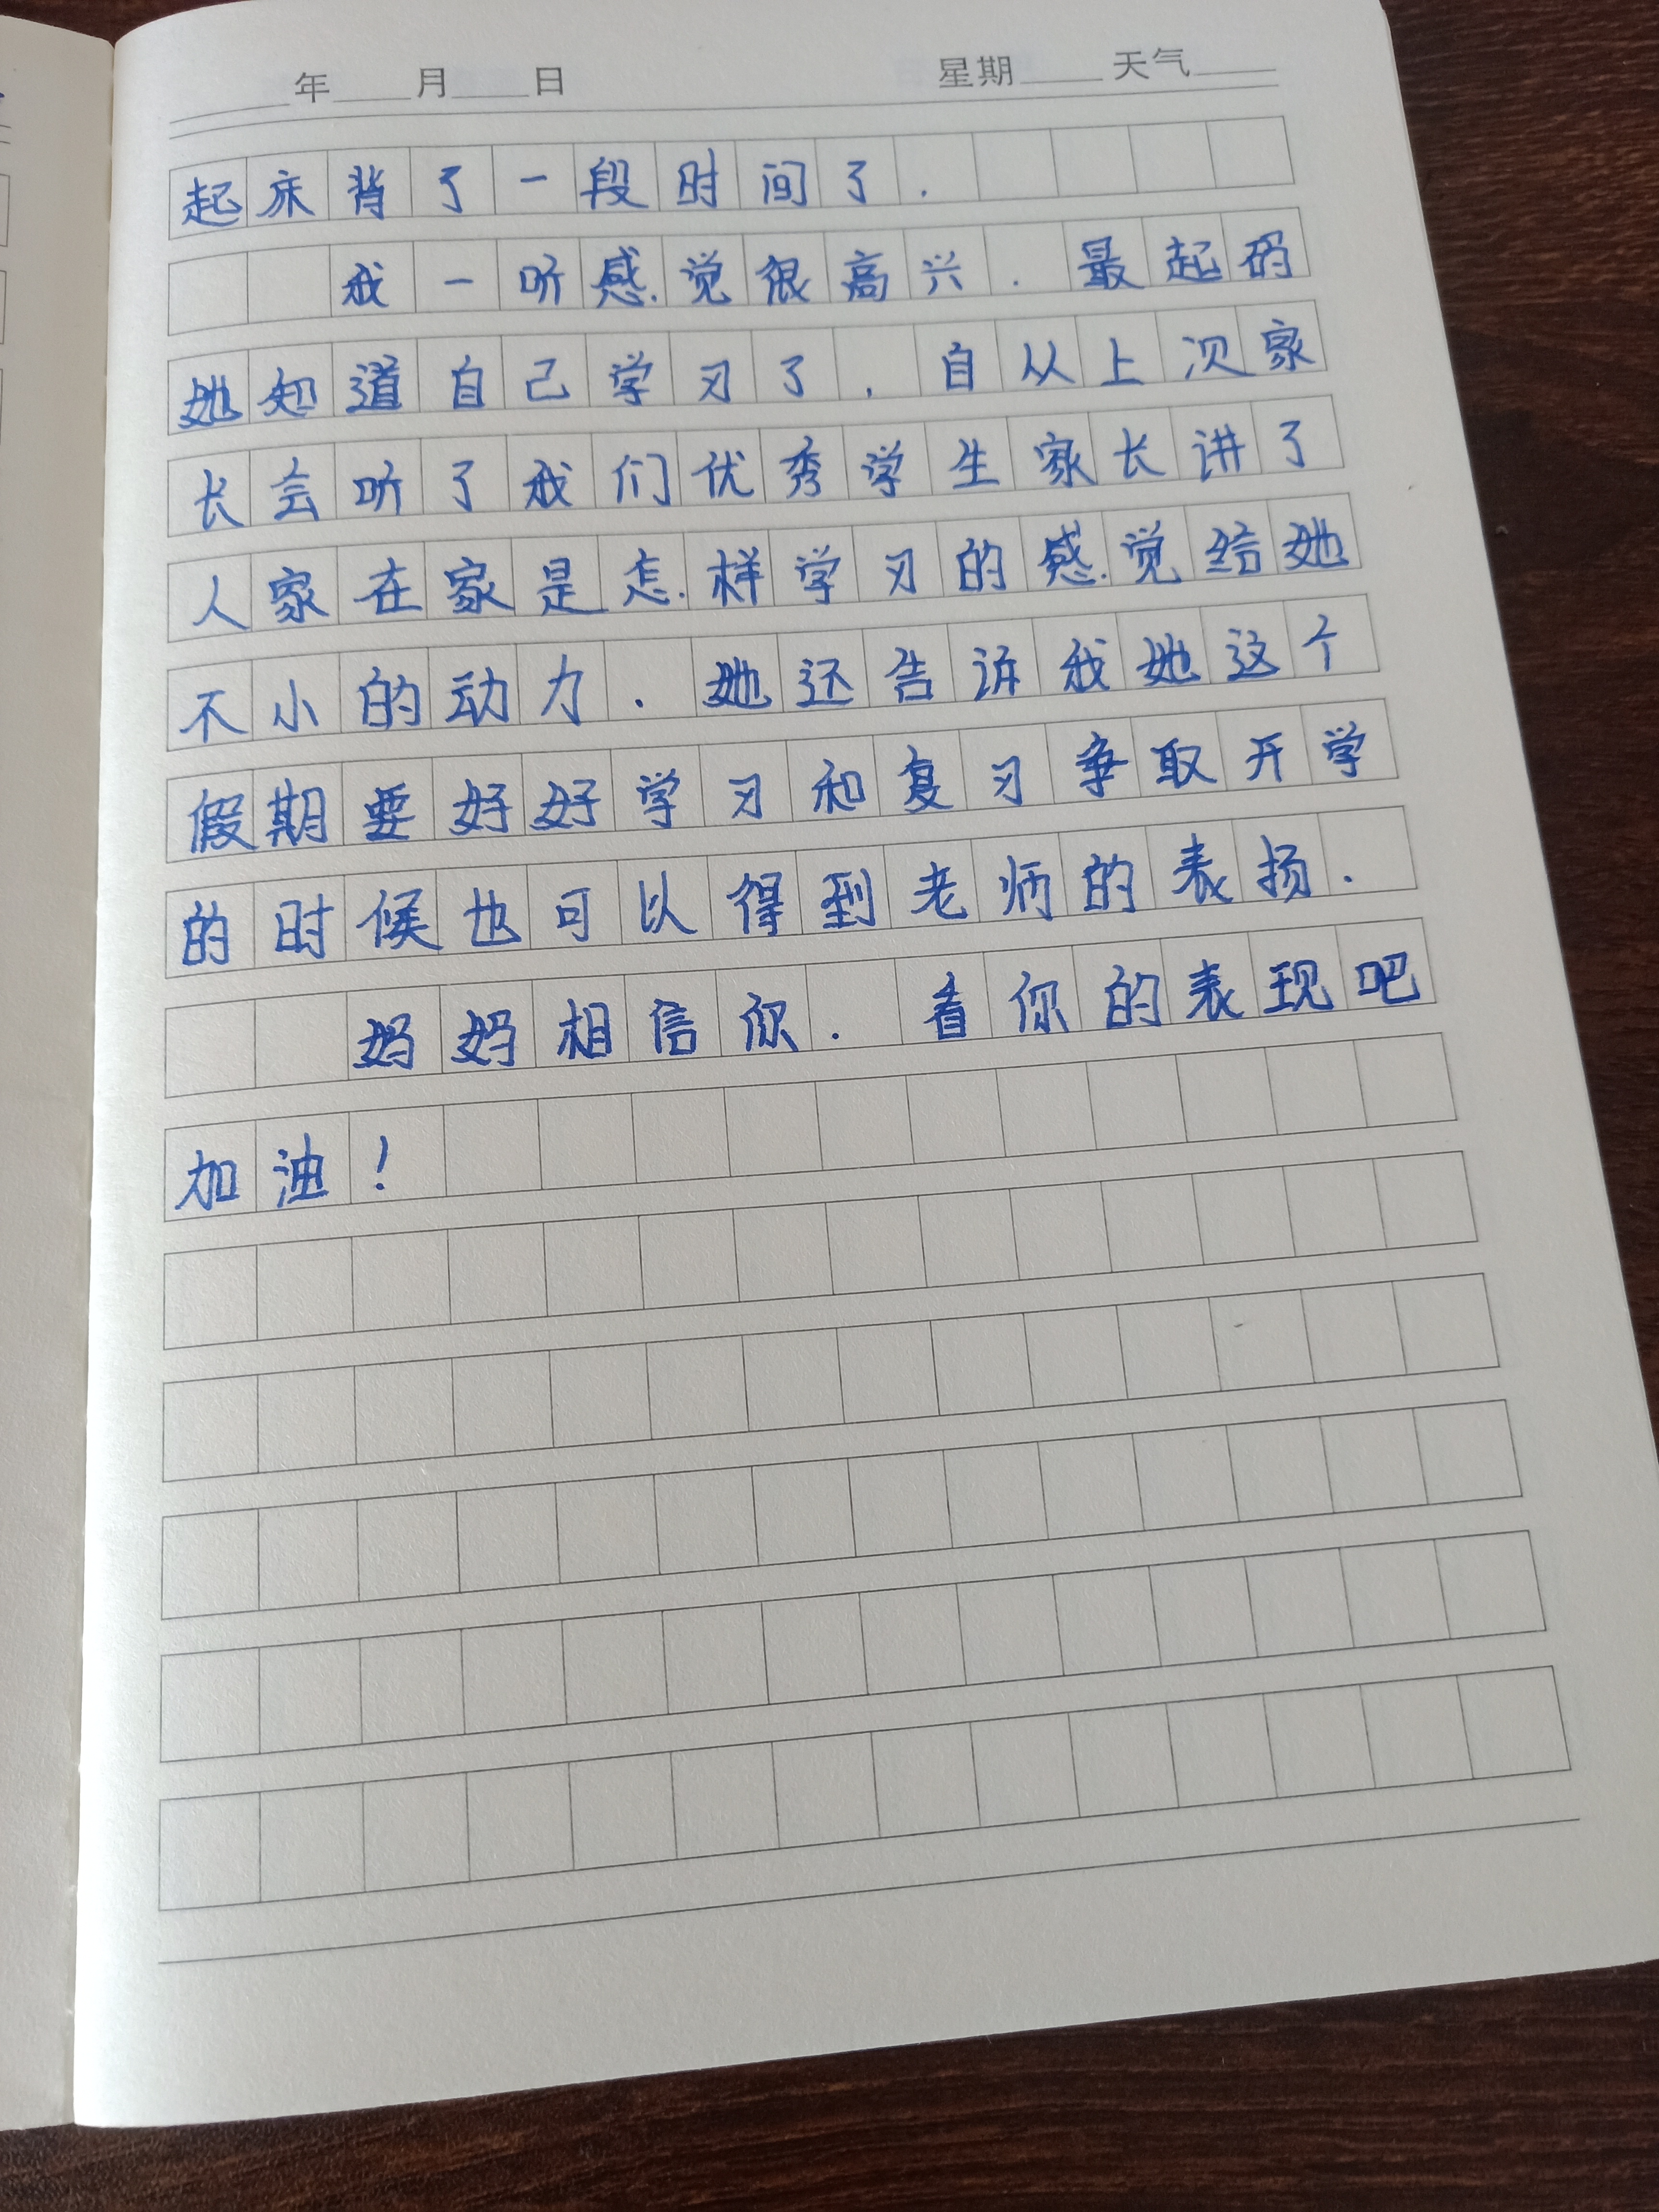 ____年____月____日 星期____天气____
起床背了一段时间了.
我一听感觉很高兴.最起码
她知道自己学习了,自从上次家
长会听了我们优秀学生家长讲了
人家在家是怎样学习的感觉给她
不小的动力.她还告诉我她这个
假期要好好学习和复习争取开学
的时候也可以得到老师的表扬.
妈妈相信你.看你的表现吧
加油!